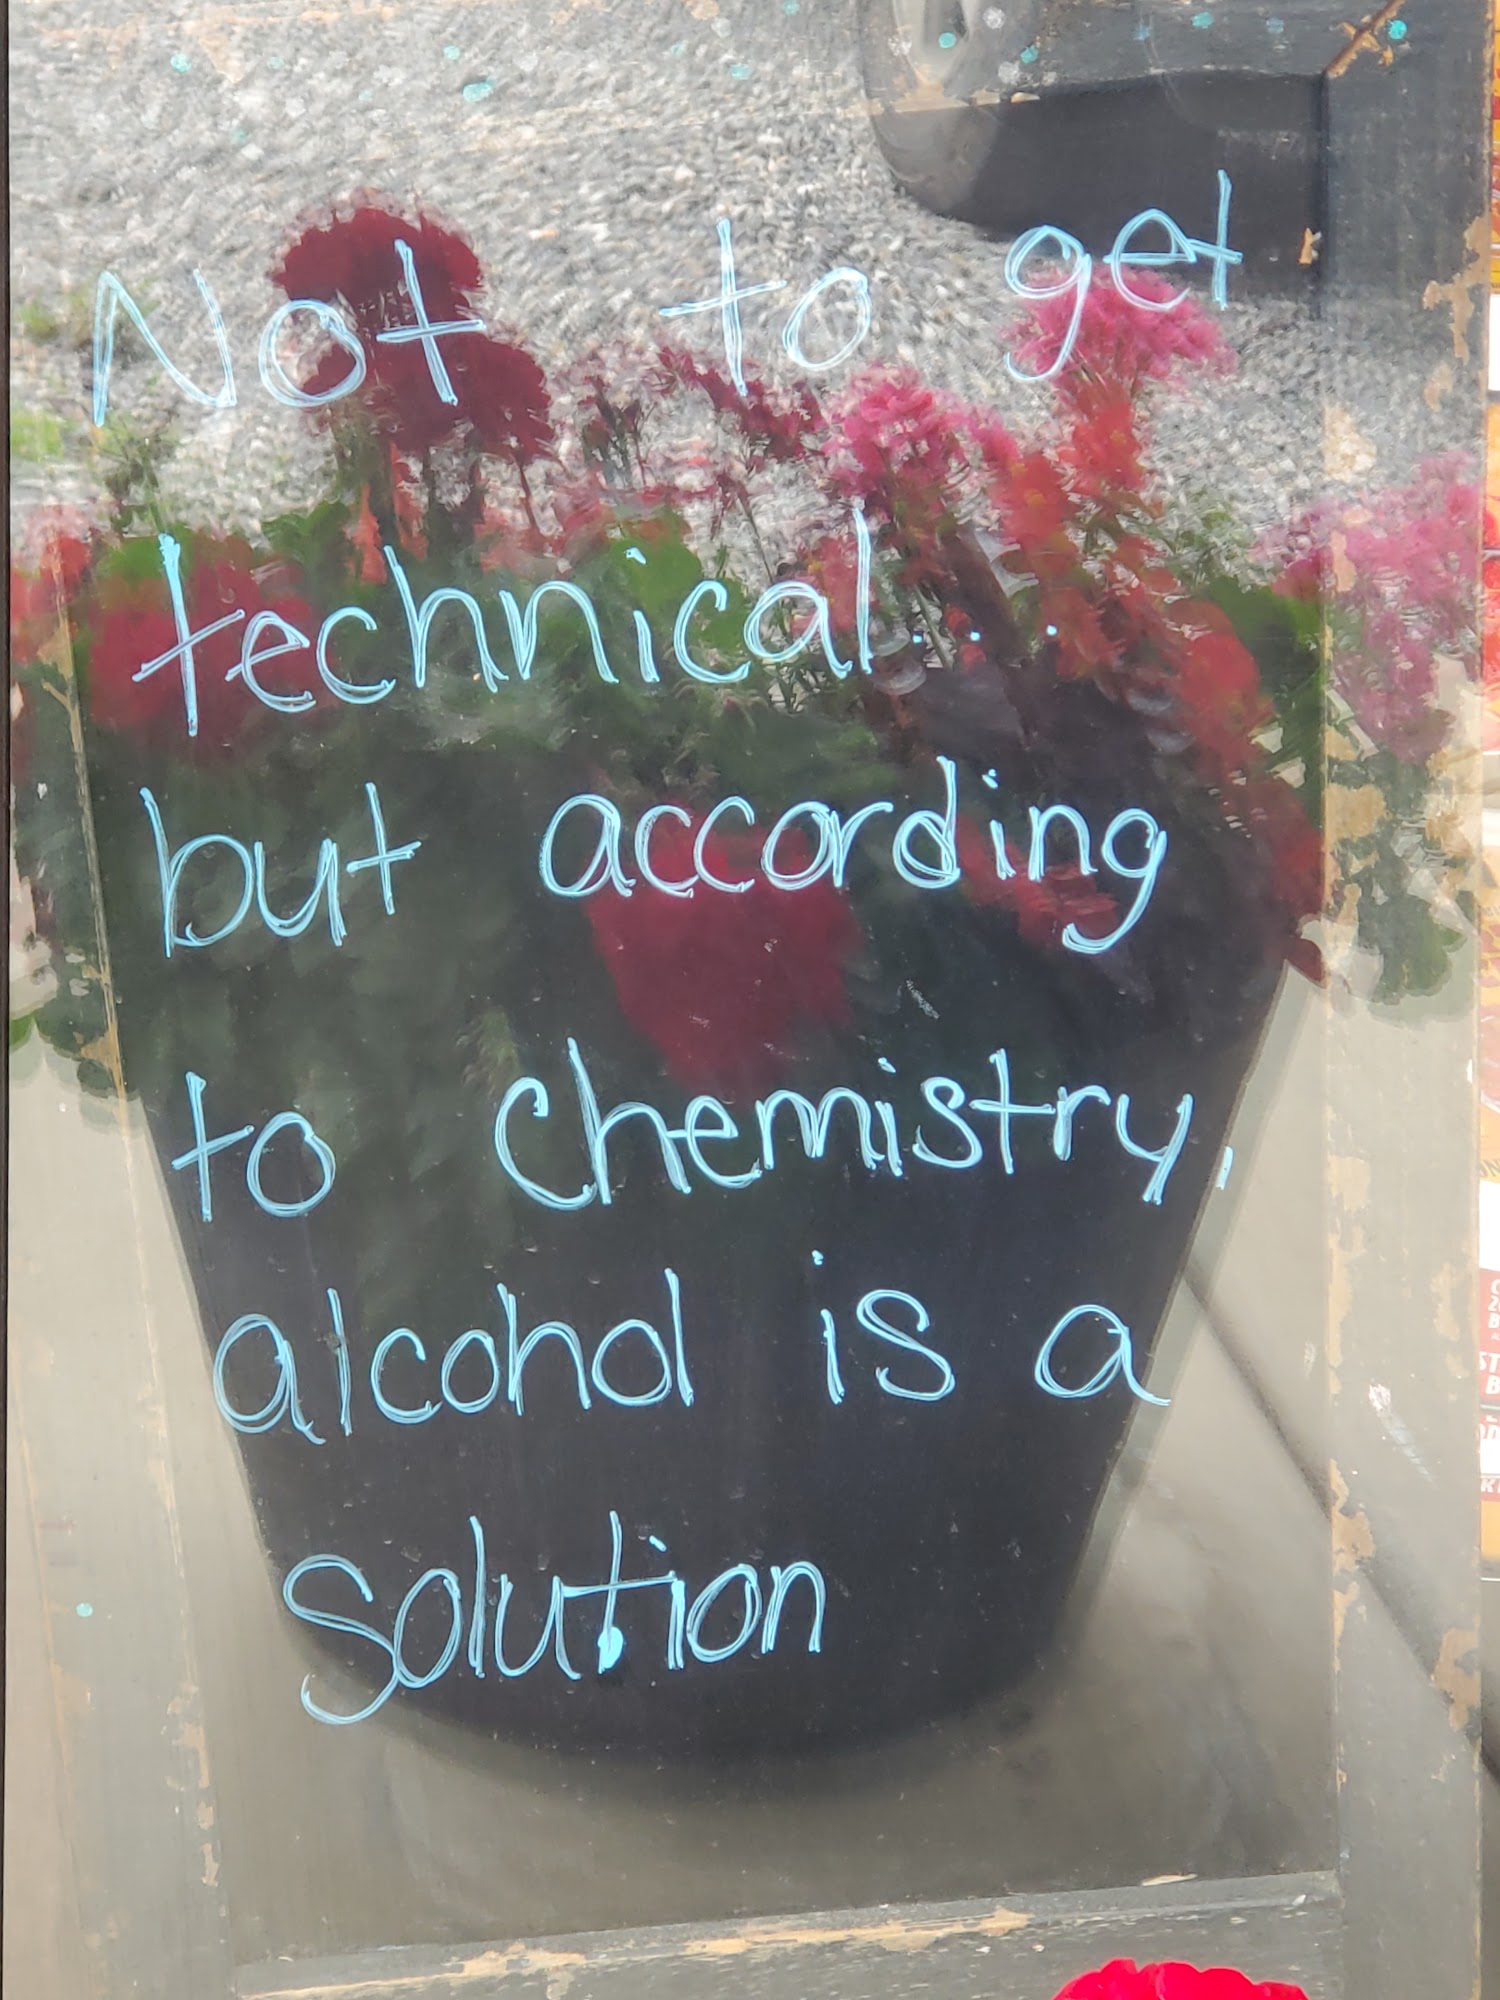 Not to get
technical...
but according
to chemistry,
alcohol is a
solution